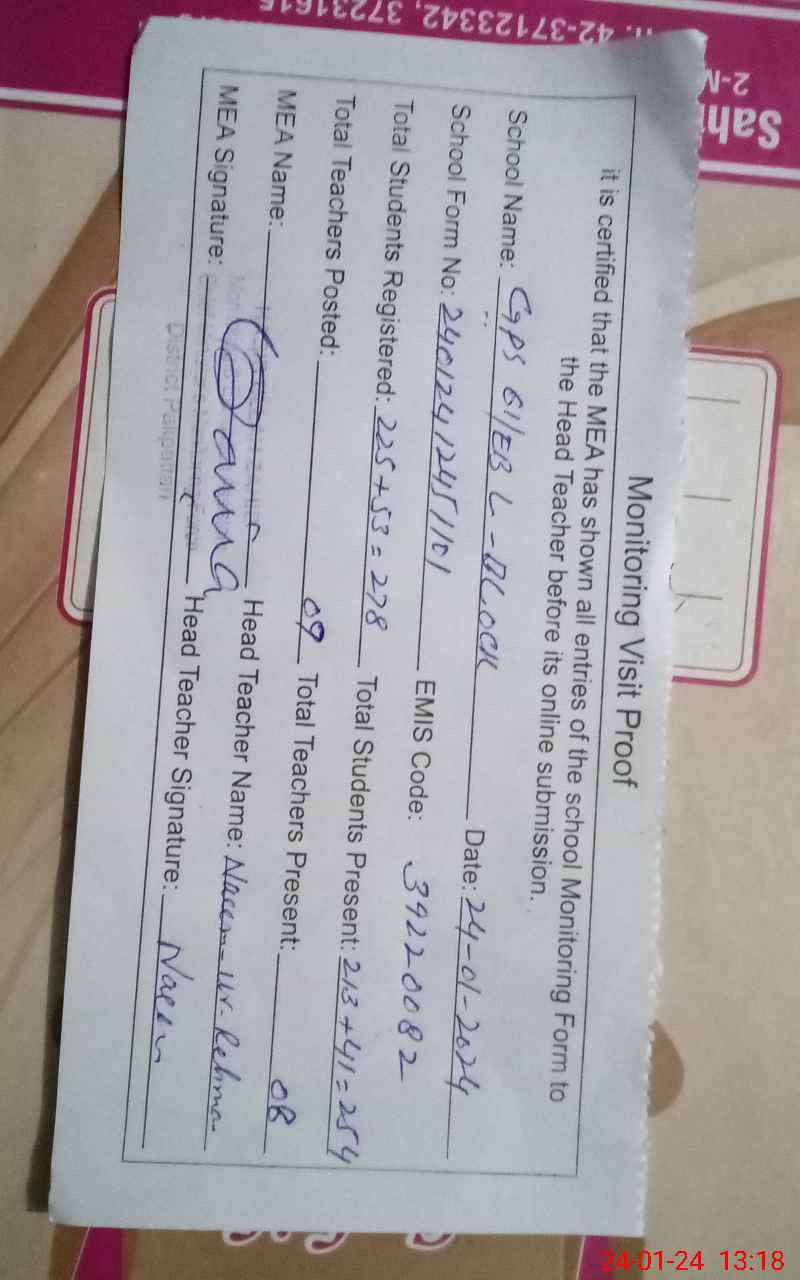 Monitoring Visit Proof
it is certified that the MEA has shown all entries of the school Monitoring Form to
the Head Teacher before its online submission.
School Name: GPS 61/EB L-BLOCK Date: 24-01-2024
School Form No: 24012412451101 EMIS Code: 39220082
Total Students Registered: 225+53=278 Total Students Present: 213+41=254
Total Teachers Posted: 09 Total Teachers Present: 08
MEA Name: Head Teacher Name: Naeem-ur-Rehman
MEA Signature: Head Teacher Signature: Naeem
District Pakpattan
42-37123342, 3723161
2-M
Sah
24-01-24 13:18